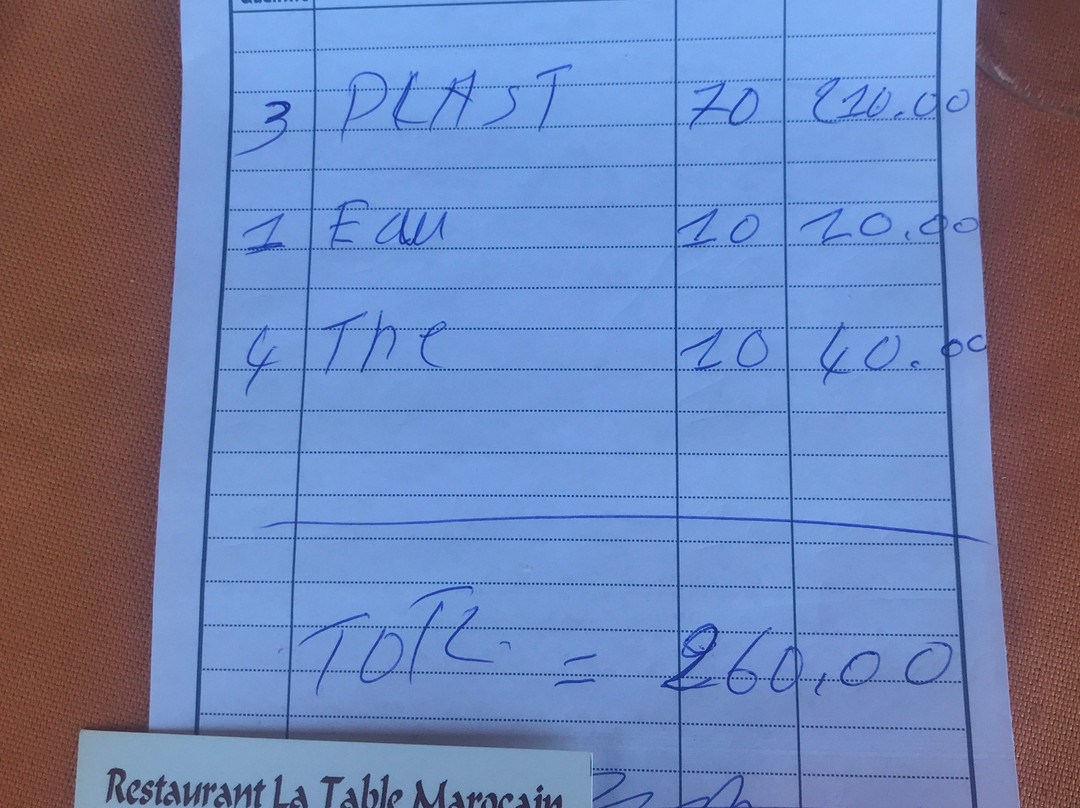 3 PLAST 70 210.00
1 Eau 10 10.00
4 The 10 40.00
TOTL = 260,00
Restaurant La Table Marocain